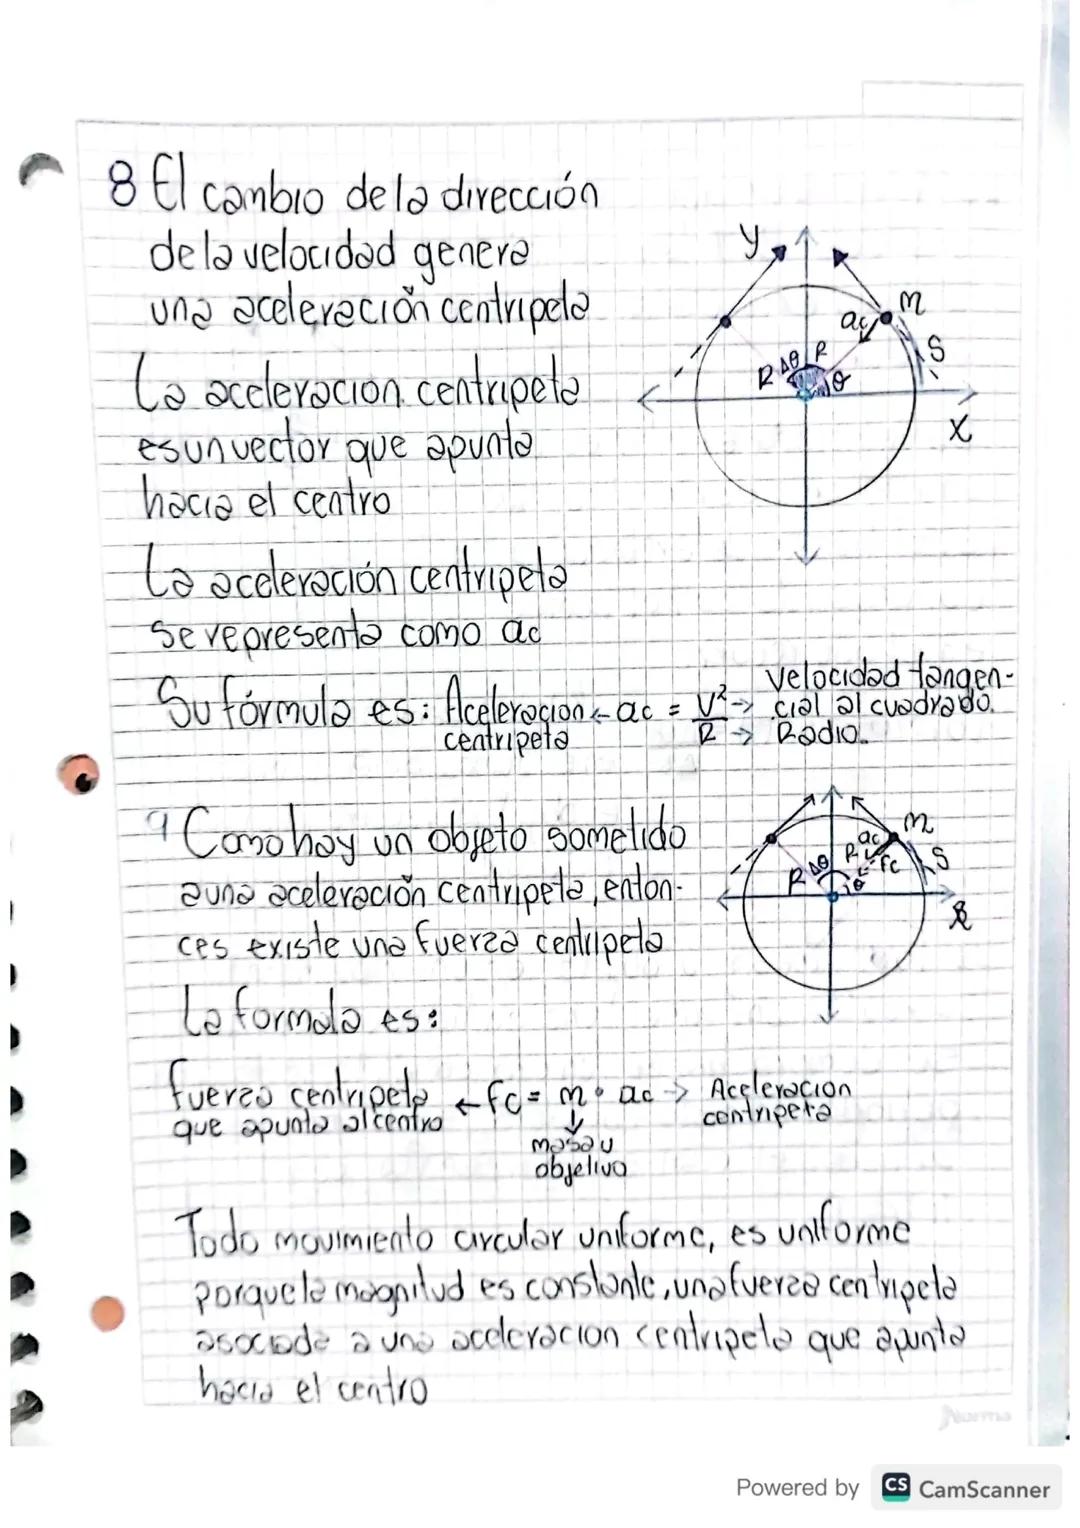 8 El cambio de la dirección
de la velocidad genera
una aceleración centripeta
La aceleracion centripeta
es un vector que apunta
hacia el centro
La aceleración centripeta
se representa como ac
Su fórmula es: Aceleracion ← ac = V² → velocidad tangen-
centripeta R → cial al cuadrado.
Radio.
y
m
ac
S
R Δθ R
θ
X
9 Como hay un objeto sometido
a una aceleración centripeta, enton-
ces existe una fuerza centripeta
La formula es:
m
ac
R Δθ R fc S
θ
fuerza centripeta ← fc = m • ac → Aceleracion
que apunta al centro centripeta
↓
masa u
objetivo
Todo movimiento circular uniforme, es uniforme
porque la magnitud es constante, una fuerza centripeta
asociada a una aceleracion centripeta que apunta
hacia el centro
Norma
Powered by CS CamScanner